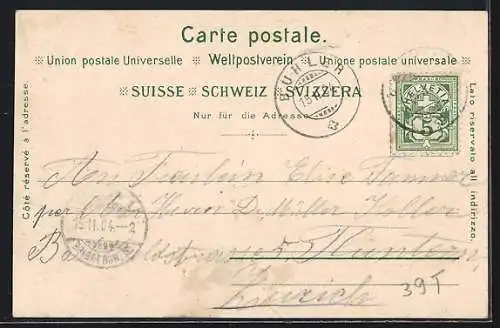 Carte postale.
Union postale Universelle Weltpostverein. Unione postale universale
SUISSE SCHWEIZ SVIZZERA
Nur für die Adresse
Côté réservé à l'adresse.
Lato riservato all indirizzo.
BÜHLER
HELVETIA
5
An Fräulein Elise Tanner
per Herrn Müller
5 Huntern
Zürich
39T